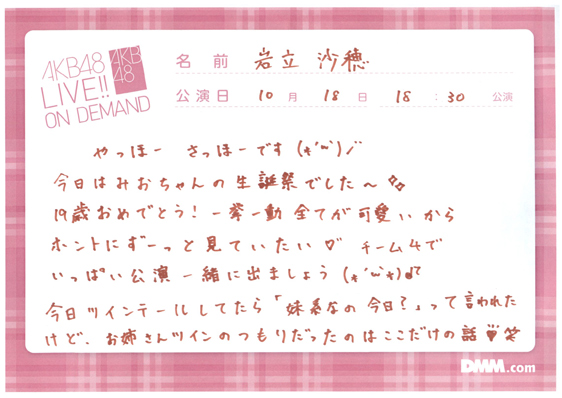 AKB48
LIVE!!
ON DEMAND
AKB
48
名前 岩立 沙穂
公演日 10月 18日 18:30 公演
やっほー さっほーです(*'ω')ノ
今日はみおちゃんの生誕祭でした〜
19歳おめでとう! 一挙一動 全てが可愛いから
ホントにずーっと見ていたい♡ チーム4で
いっぱい公演一緒に出ましょう(*'ω'*)♪
今日ツインテールしてたら「妹系なの今日?」って言われた
けど、お姉さんツインのつもりだったのはここだけの話♥笑
DMM.com